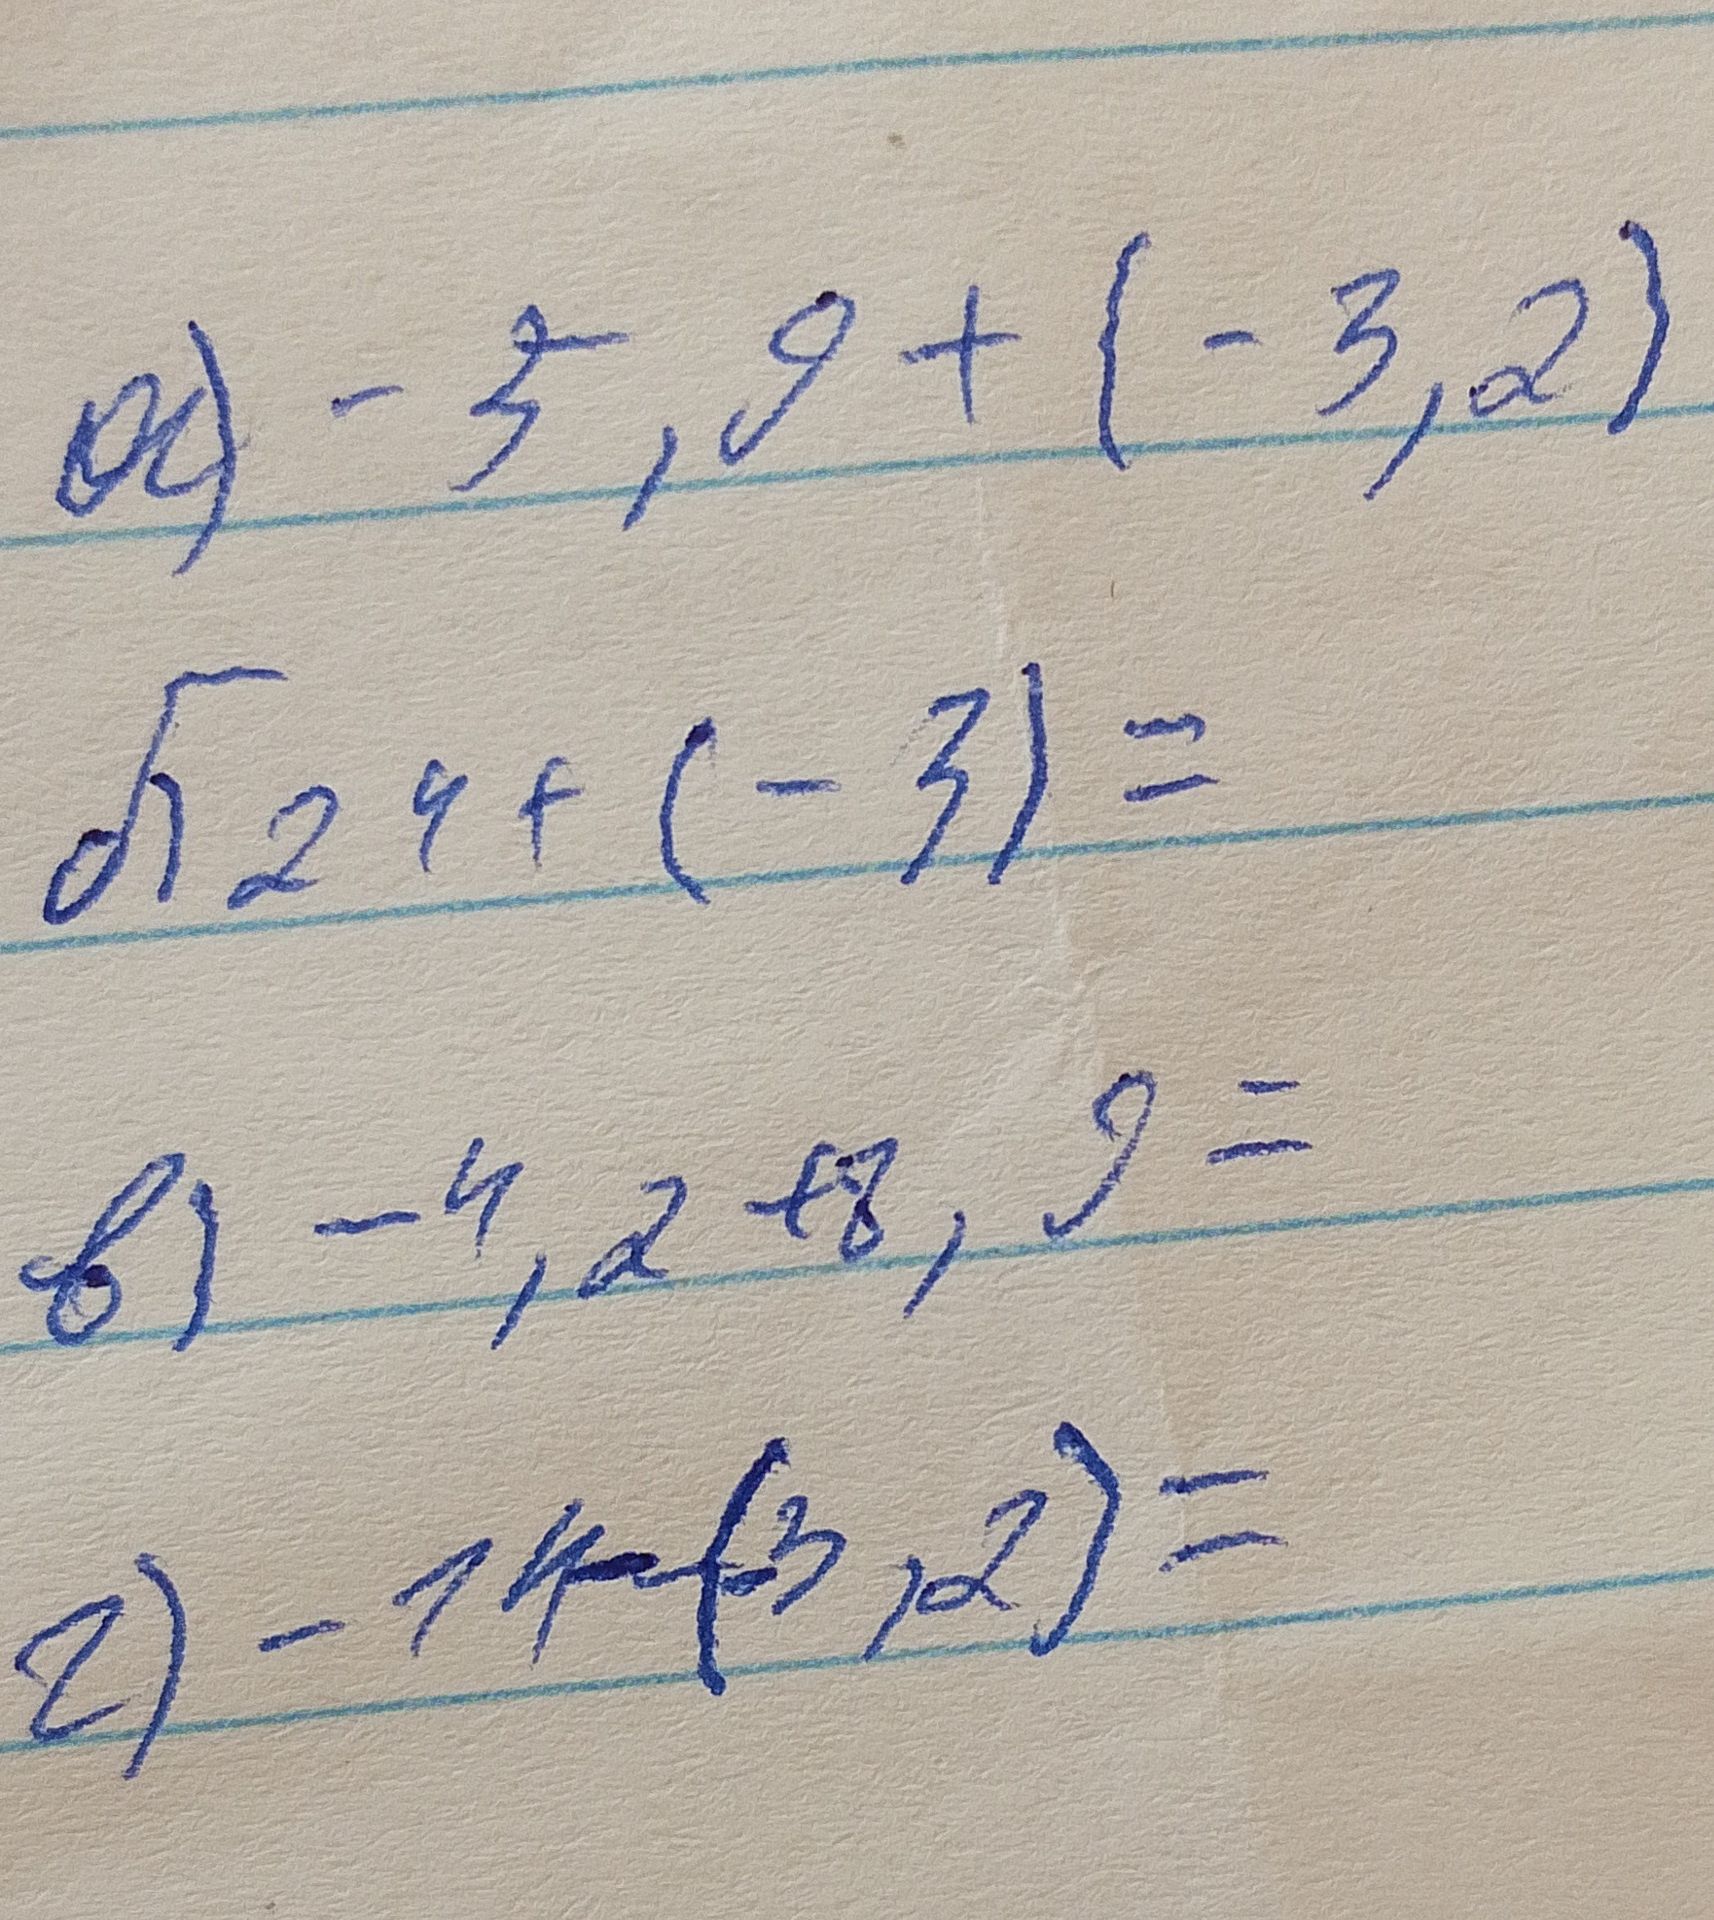 а) -5,9+(-3,2)
б) 24+(-3)=
в) -4,2+8,9=
г) -14-(-3,2)=